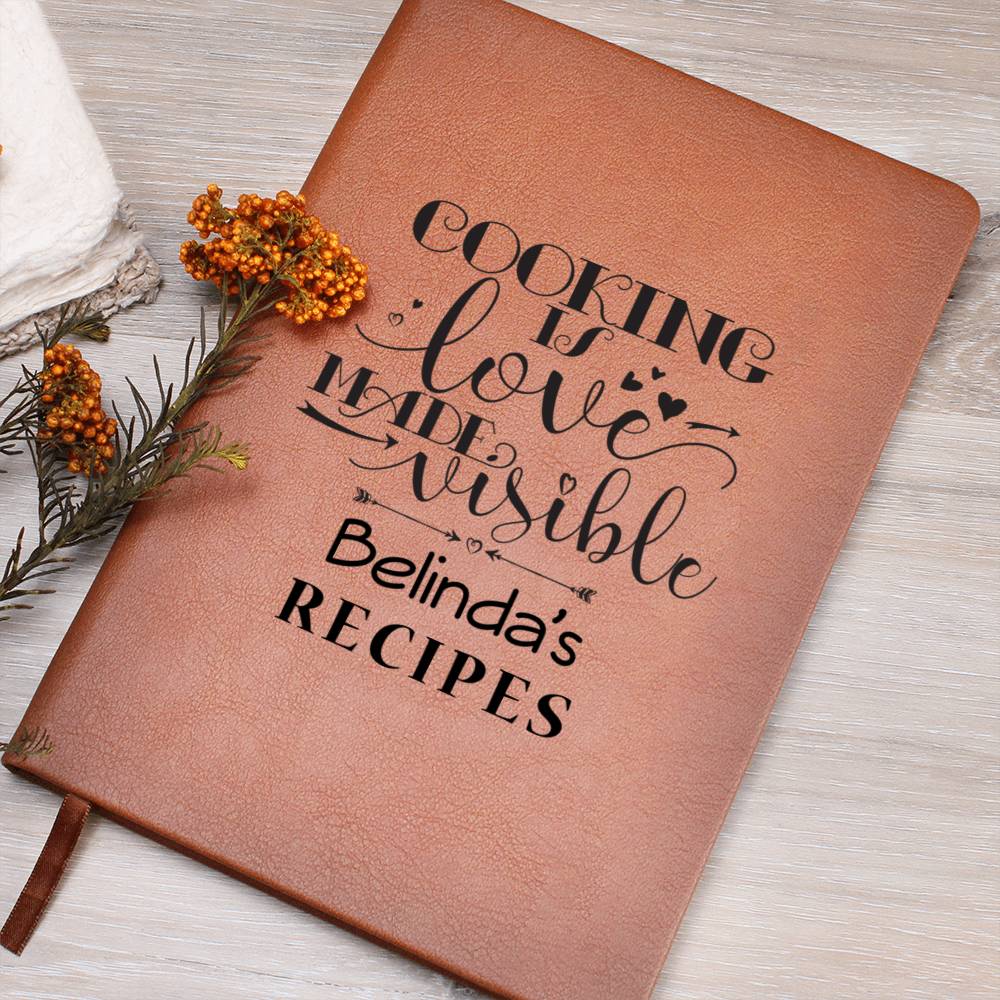 COOKING
IS
love
MADE
visible
Belinda's
RECIPES